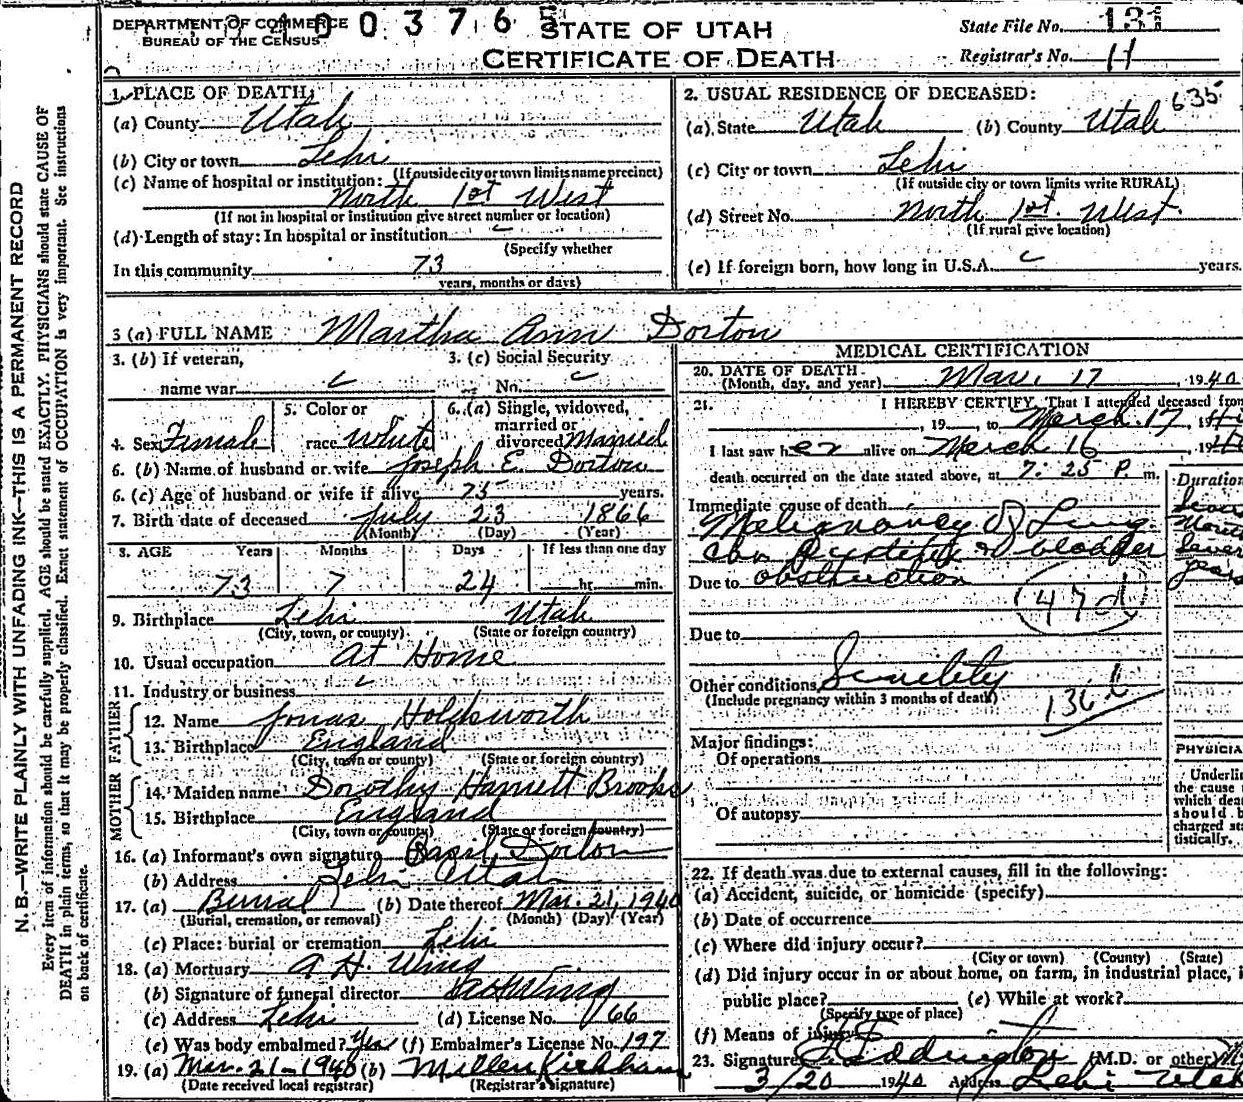 DEPARTMENT OF COMMERCE
BUREAU OF THE CENSUS
100376
STATE OF UTAH
CERTIFICATE OF DEATH
State File No. 131
Registrar's No. 11
N. B.—WRITE PLAINLY WITH UNFADING INK—THIS IS A PERMANENT RECORD
Every item of information should be carefully supplied. AGE should be stated EXACTLY. PHYSICIANS should state CAUSE OF
DEATH in plain terms, so that it may be properly classified. Exact statement of OCCUPATION is very important. See instructions
on back of certificate.
1. PLACE OF DEATH:
(a) County Utah
(b) City or town Lehi
(If outside city or town limits name precinct)
(c) Name of hospital or institution:
North 1st West
(If not in hospital or institution give street number or location)
(d) Length of stay: In hospital or institution
(Specify whether
In this community 73
years, months or days)
2. USUAL RESIDENCE OF DECEASED:
635
(a) State Utah (b) County Utah
(c) City or town Lehi
(If outside city or town limits write RURAL)
(d) Street No. North 1st. West.
(If rural give location)
(e) If foreign born, how long in U.S.A. years.
3 (a) FULL NAME Martha Ann Dorton
3. (b) If veteran,
name war
3. (c) Social Security
No.
4. Sex Female
5. Color or
race White
6. (a) Single, widowed,
married or
divorced Married
6. (b) Name of husband or wife Joseph E. Dorton
6. (c) Age of husband or wife if alive 75 years.
7. Birth date of deceased July 23 1866
(Month) (Day) (Year)
8. AGE Years Months Days If less than one day
73 7 24 hr. min.
9. Birthplace Lehi Utah
(City, town, or county) (State or foreign country)
10. Usual occupation At Home
11. Industry or business
FATHER
12. Name Jonas Holdsworth
13. Birthplace England
(City, town or county) (State or foreign country)
MOTHER
14. Maiden name Dorothy Harriett Brooks
15. Birthplace England
(City, town or county) (State or foreign country)
16. (a) Informant's own signature Basil Dorton
(b) Address Lehi Utah
17. (a) Burial (b) Date thereof Mar. 21, 1940
(Burial, cremation, or removal) (Month) (Day) (Year)
(c) Place: burial or cremation Lehi
18. (a) Mortuary A. H. Wing
(b) Signature of funeral director
(c) Address Lehi (d) License No. 66
(e) Was body embalmed? Yes (f) Embalmer's License No. 197
19. (a) Mar. 21-1940 (b) Kirkham
(Date received local registrar) (Registrar's signature)
MEDICAL CERTIFICATION
20. DATE OF DEATH
(Month, day, and year) Mar. 17, 1940
21. I HEREBY CERTIFY, That I attended deceased from
, 19 , to March 17, 1940
I last saw her alive on March 16 1940
death occurred on the date stated above, at 7:25 P. m.
Immediate cause of death
Duration
Malignancy of Lung
and of bladder
Due to obstruction
47d
Due to
Other conditions Senility
(Include pregnancy within 3 months of death)
136
Major findings:
Of operations
Of autopsy
PHYSICIA
Underlin
the cause
which dea
should b
charged sta
tistically.
22. If death was due to external causes, fill in the following:
(a) Accident, suicide, or homicide (specify)
(b) Date of occurrence
(c) Where did injury occur?
(City or town) (County) (State)
(d) Did injury occur in or about home, on farm, in industrial place, i
public place? (e) While at work?
(Specify type of place)
(f) Means of injury
23. Signature Eddington (M.D. or other)
3/20 1940 Address Lehi Utah